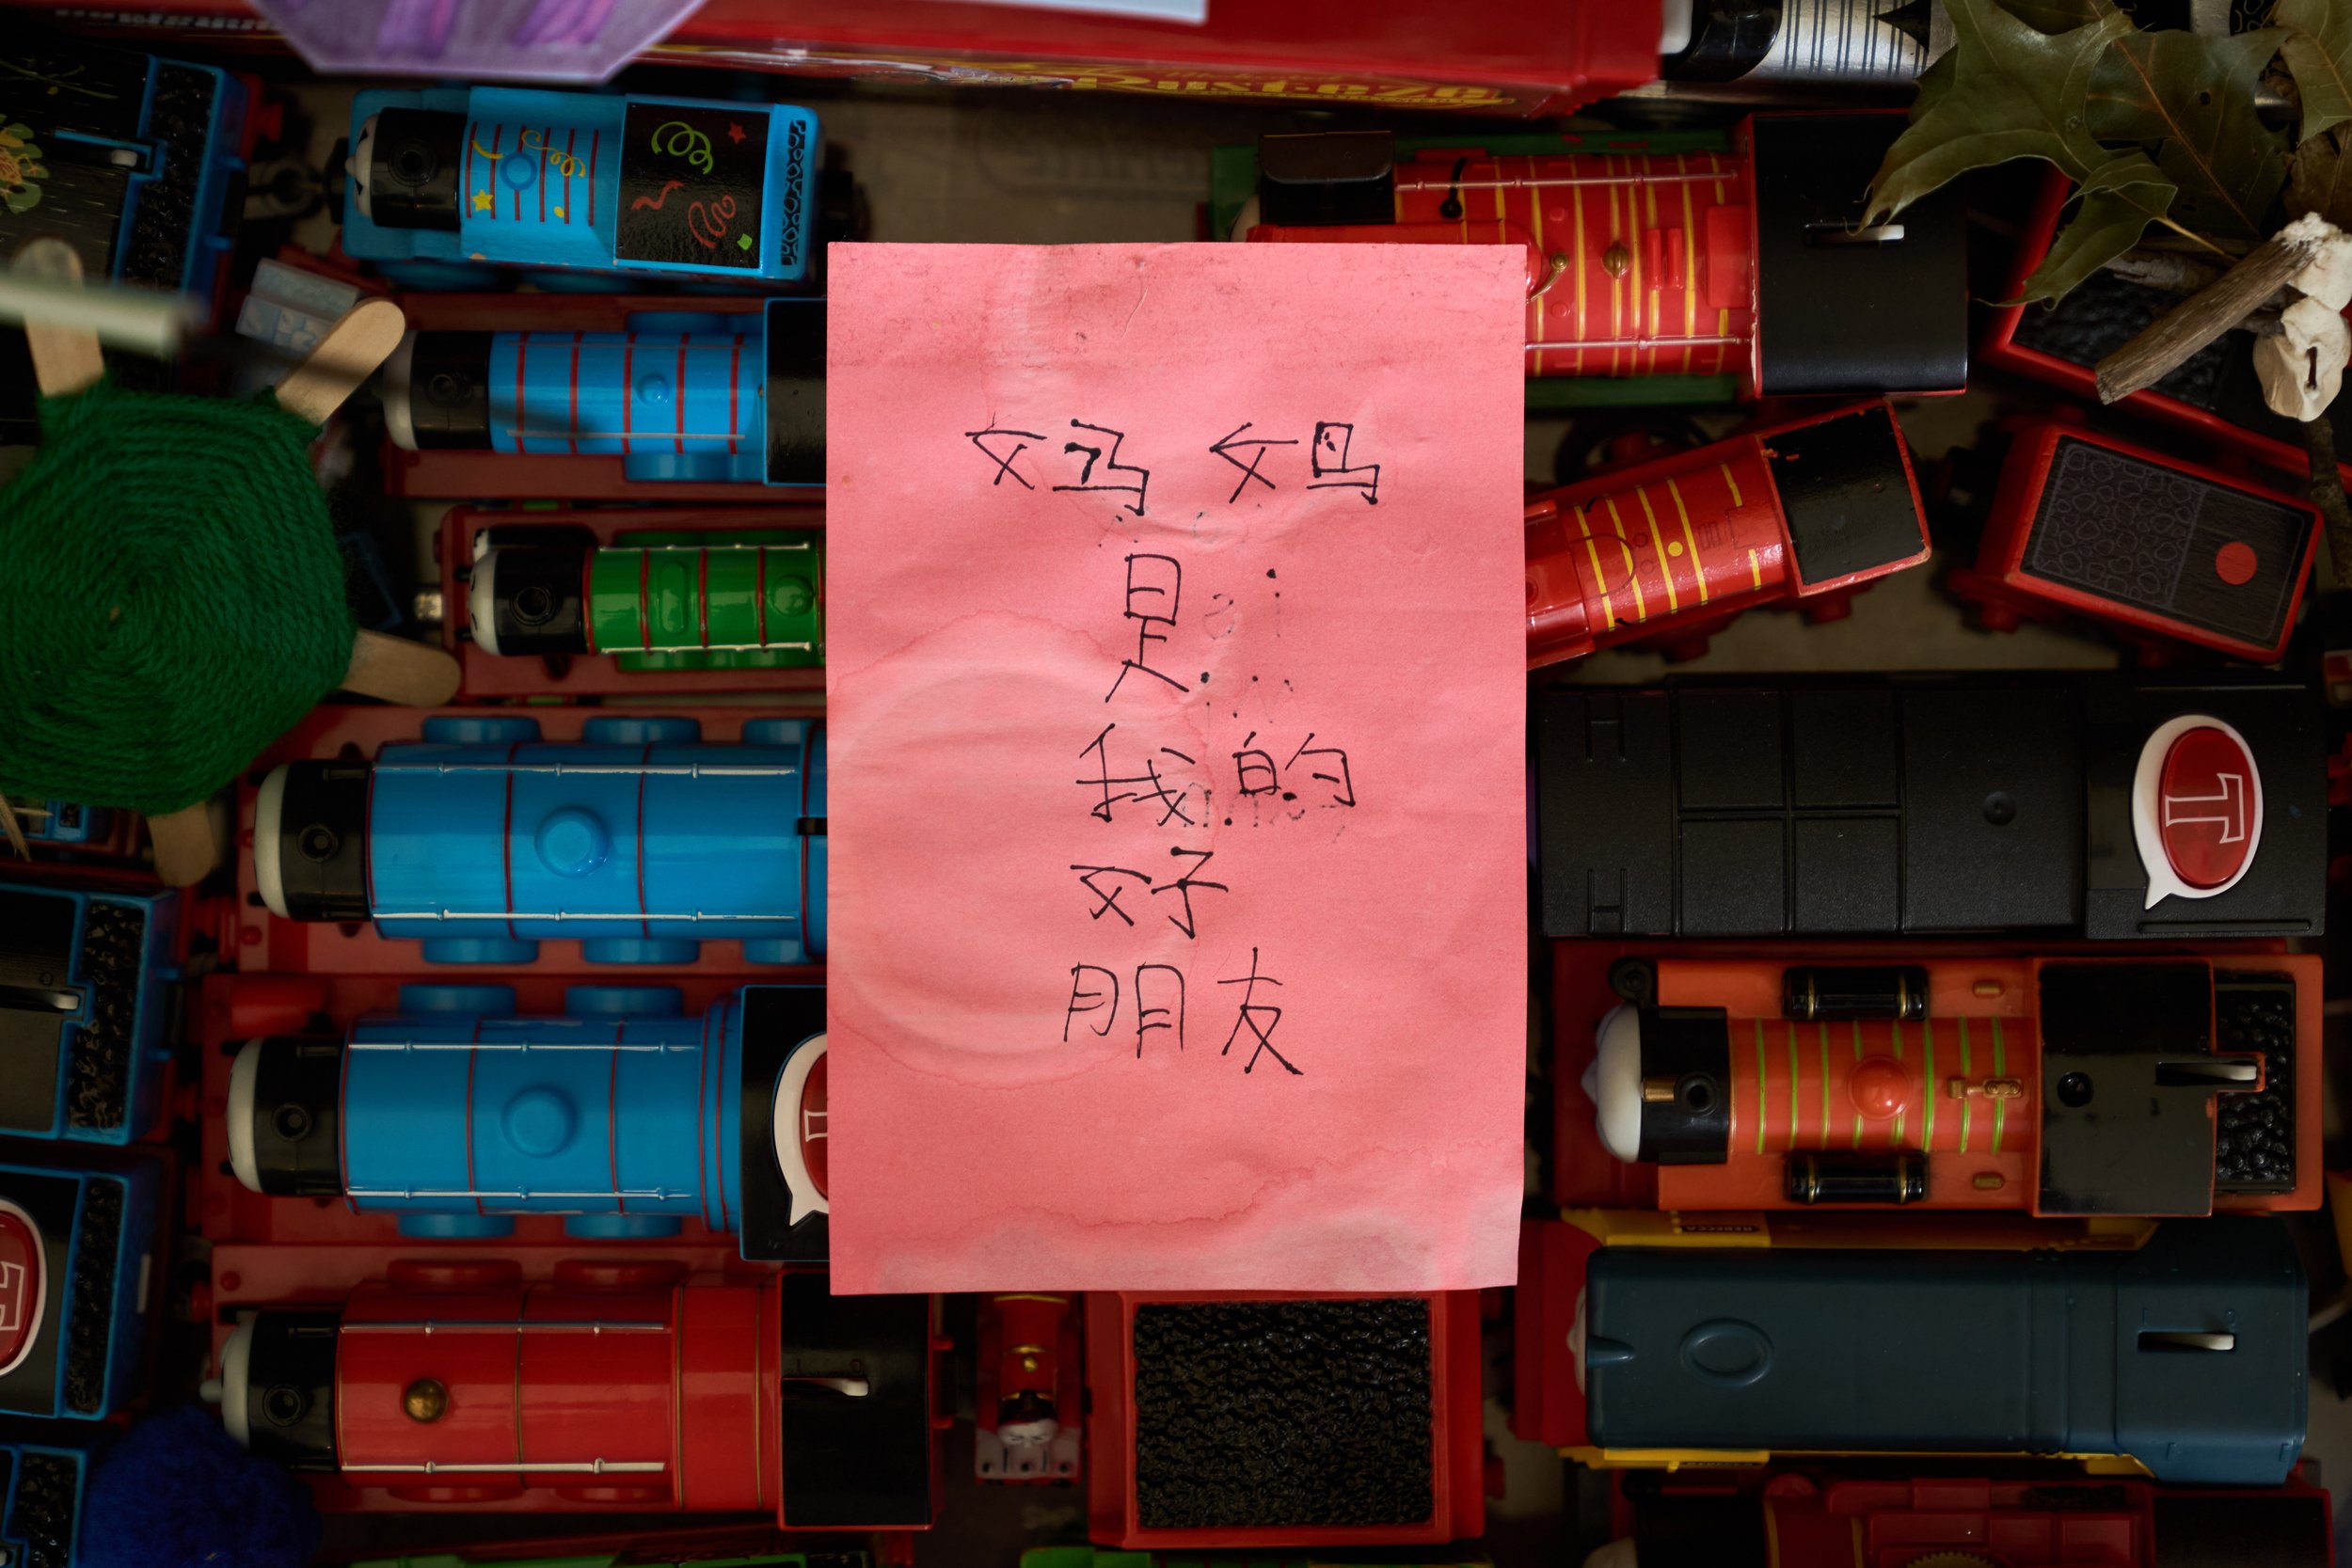 妈 妈
是
我的
好
朋友
T
REBECCA